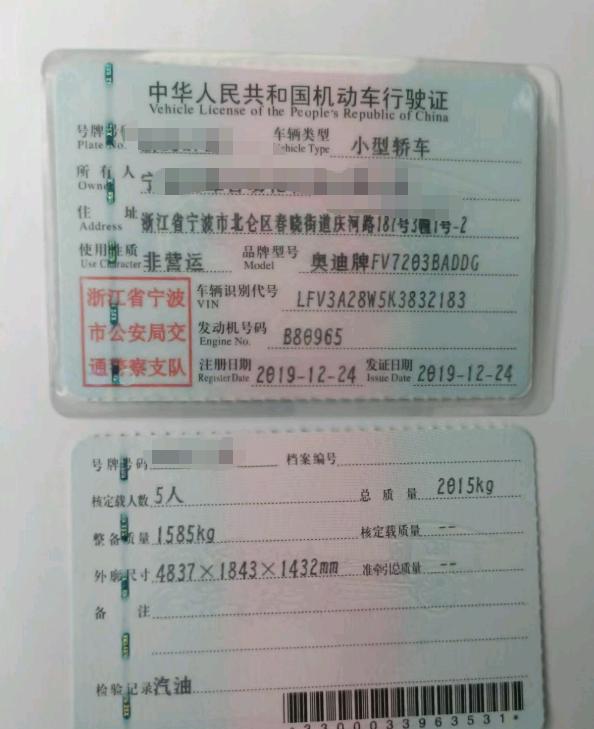 中华人民共和国机动车行驶证
Vehicle License of the People's Republic of China
号牌号码 车辆类型 小型轿车
Plate No. Vehicle Type
所有人 宁
Owner
住址 浙江省宁波市北仑区春晓街道庆河路187号3幢1号-2
Address
使用性质 非营运 品牌型号 奥迪牌FV7203BADDG
Use Character Model
浙江省宁波市公安局交通警察支队
车辆识别代号 LFV3A28W5K3832183
VIN
发动机号码 B80965
Engine No.
注册日期 2019-12-24 发证日期 2019-12-24
Register Date Issue Date
号牌号码 档案编号
核定载人数 5人 总质量 2015kg
整备质量 1585kg 核定载质量 --
外廓尺寸 4837×1843×1432mm 准牵引总质量 --
备注
检验记录 汽油
*3300033963531*